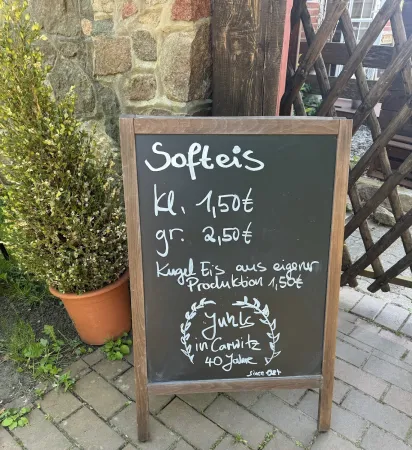 Softeis
kl. 1,50€
gr. 2,50€
Kugel Eis aus eigener
Produktion 1,50€
Juhls
in Carwitz
40 Jahre
since 1984